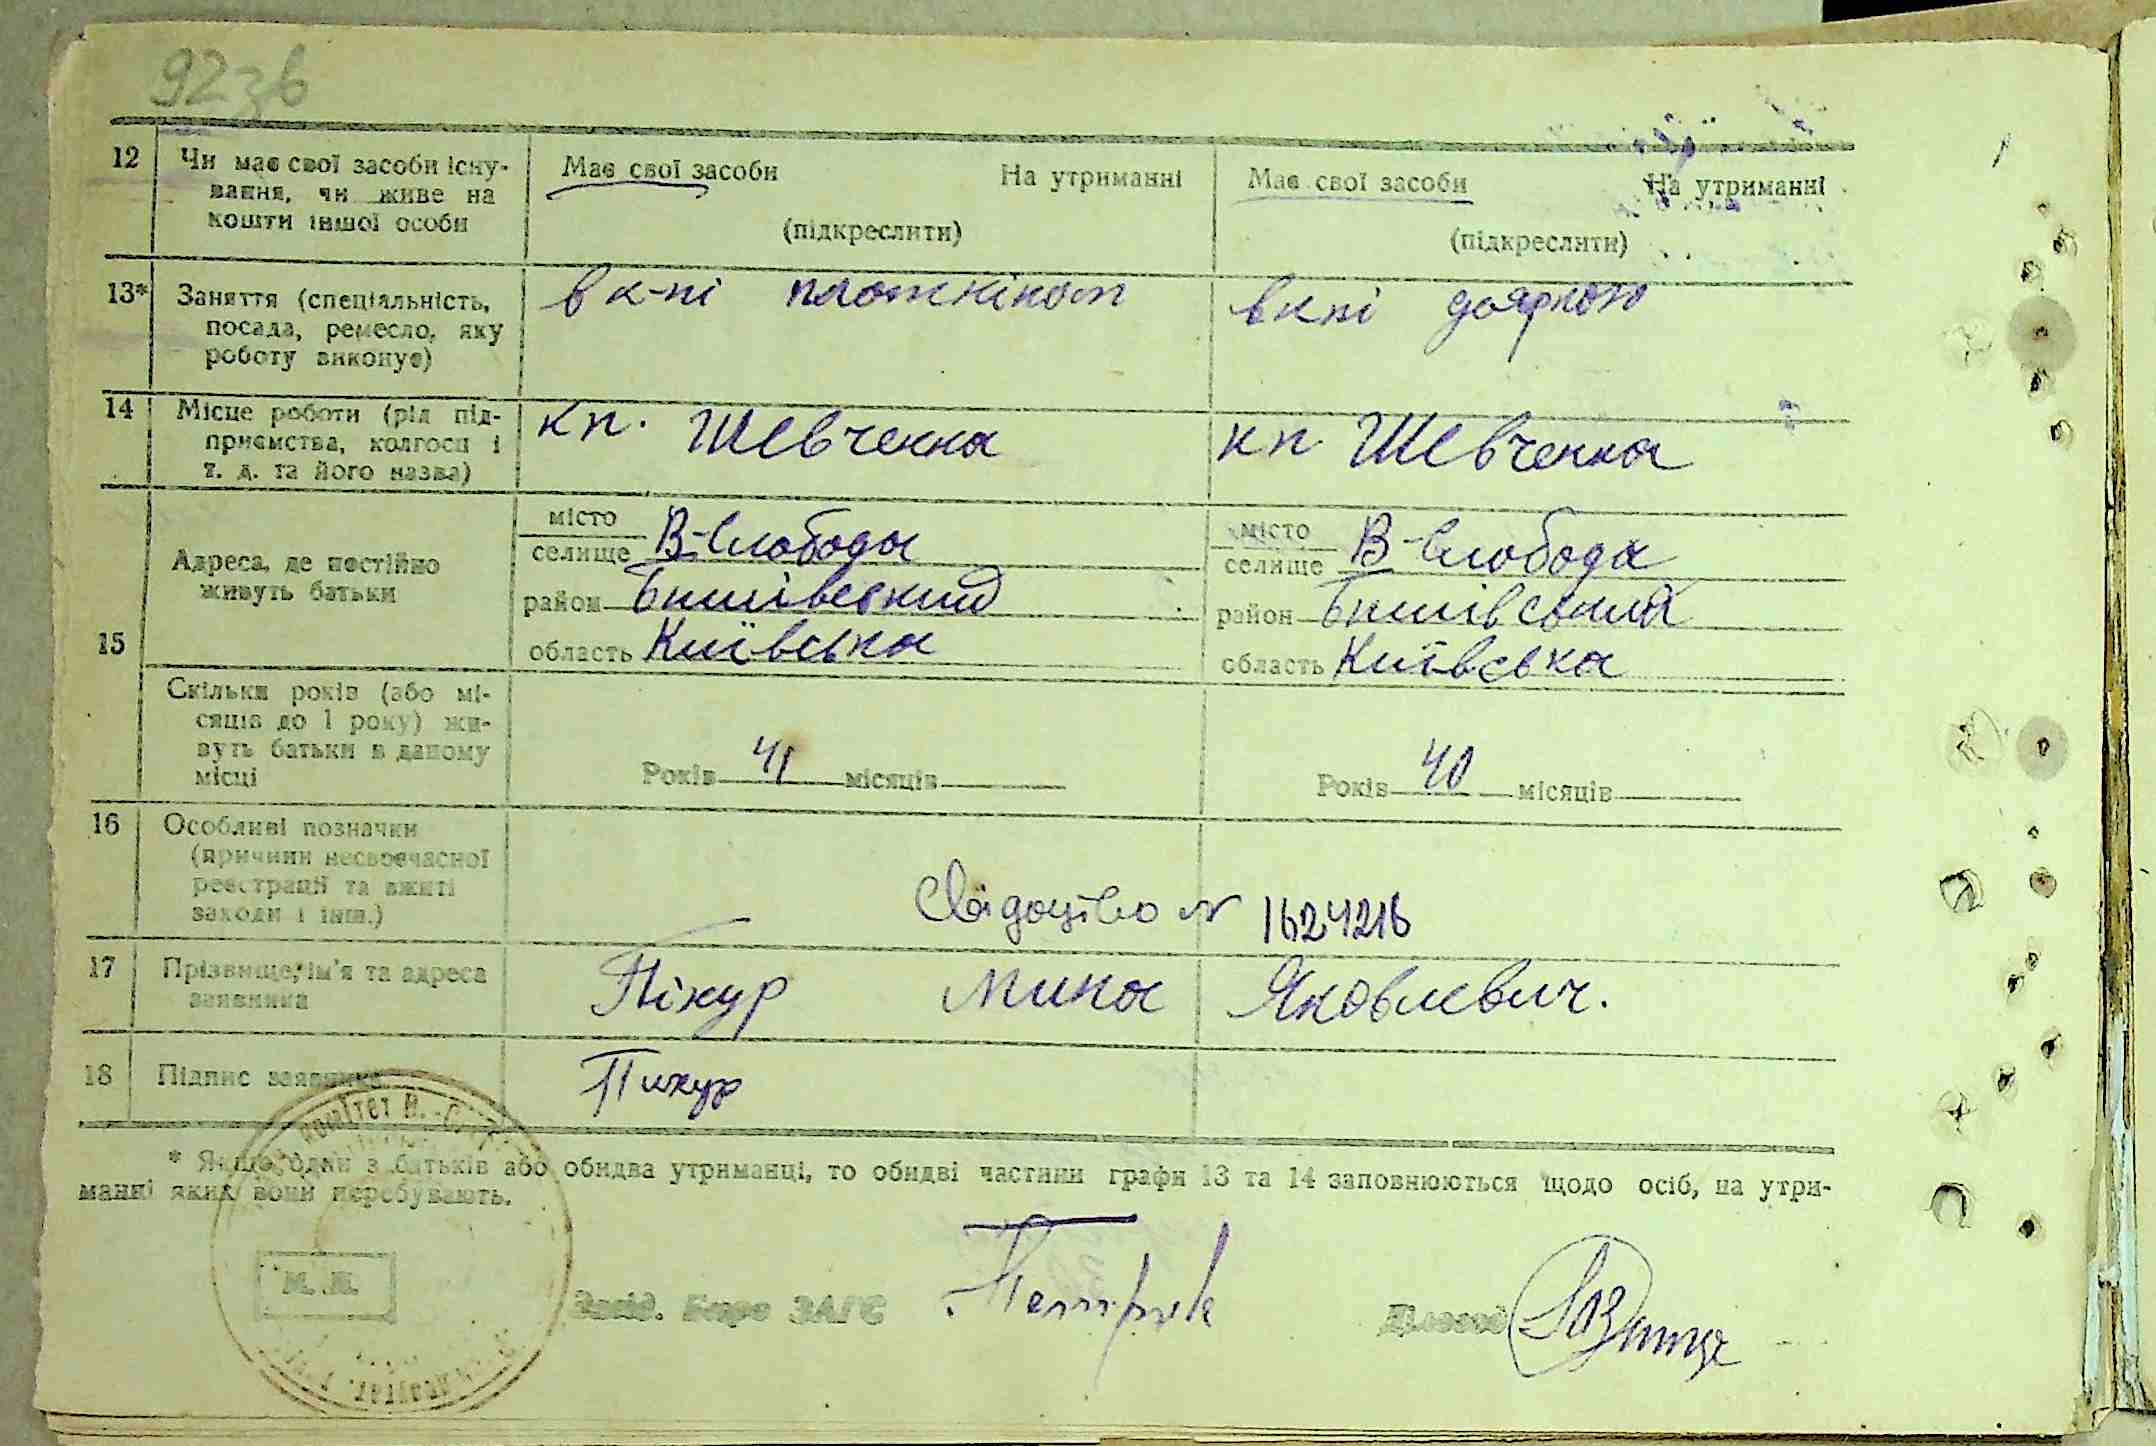 92зв
12 Чи має свої засоби існу-
вання, чи живе на
кошти іншої особи
Має свої засоби На утриманні
(підкреслити)
Має свої засоби На утриманні
(підкреслити)
13* Заняття (спеціальність,
посада, ремесло, яку
роботу виконує)
в к-пі
в кпі дояркою
14 Місце роботи (рід під-
приємства, колгосп і
т. д. та його назва)
кп. Шевченка
кп Шевченка
15 Адреса, де постійно
живуть батьки
місто
селище В-Слобода
район Бишівський
область Київська
місто
селище В-Слобода
район Бишівський
область Київська
Скільки років (або мі-
сяців до 1 року) жи-
вуть батьки в даному
місці
Років 41 місяців
Років 40 місяців
16 Особливі позначки
(причини несвоєчасної
реєстрації та вжиті
заходи і інш.)
Свідоцтво N 1624216
17 Прізвище, ім'я та адреса
заявника
Пікур Мина Яковлевич.
18 Підпис заявника
Пикур
* Якщо один з батьків або обидва утриманці, то обидві частини графи 13 та 14 заповнюються щодо осіб, на утри-
манні яких вони перебувають.
М. П.
Завід. Бюро ЗАГС
Діловод